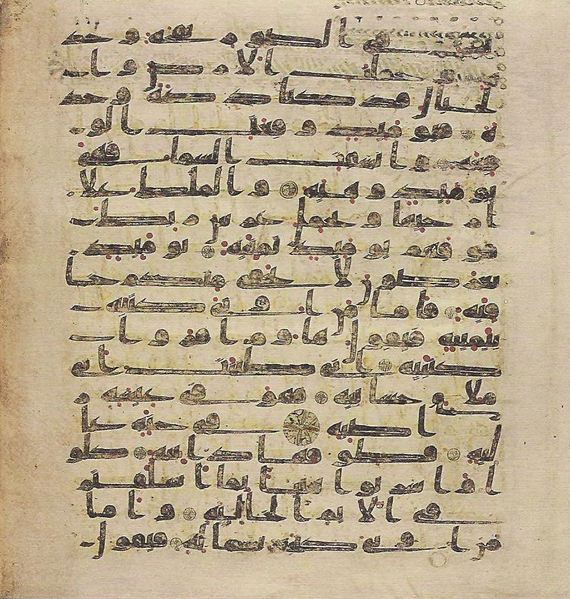 نفخ في الصور نفخة وحد
ة وحملت الارض وا
لجبال فدكتا دكة وحد
ة فيومئذ وقعت الو
قعة وانشقت السما فهي
يومئذ وهية والملك علا
ارجائها ويحمل عرش ربك
فوقهم يومئذ ثمنية يومئذ
تعرضون لا تخفى منكم خا
فية فاما من اوتي كتبه
بيمينه فيقول هاوم اقروا
كتبيه اني ظننت اني
ملاق حسابيه فهو في عيشة ر
اضية في جنة عا
لية قطوفها دانية كلو
ا واشربوا هنيا بما اسلفتم
في الايام الخالية واما
من اوتي كتبه بشماله فيقول